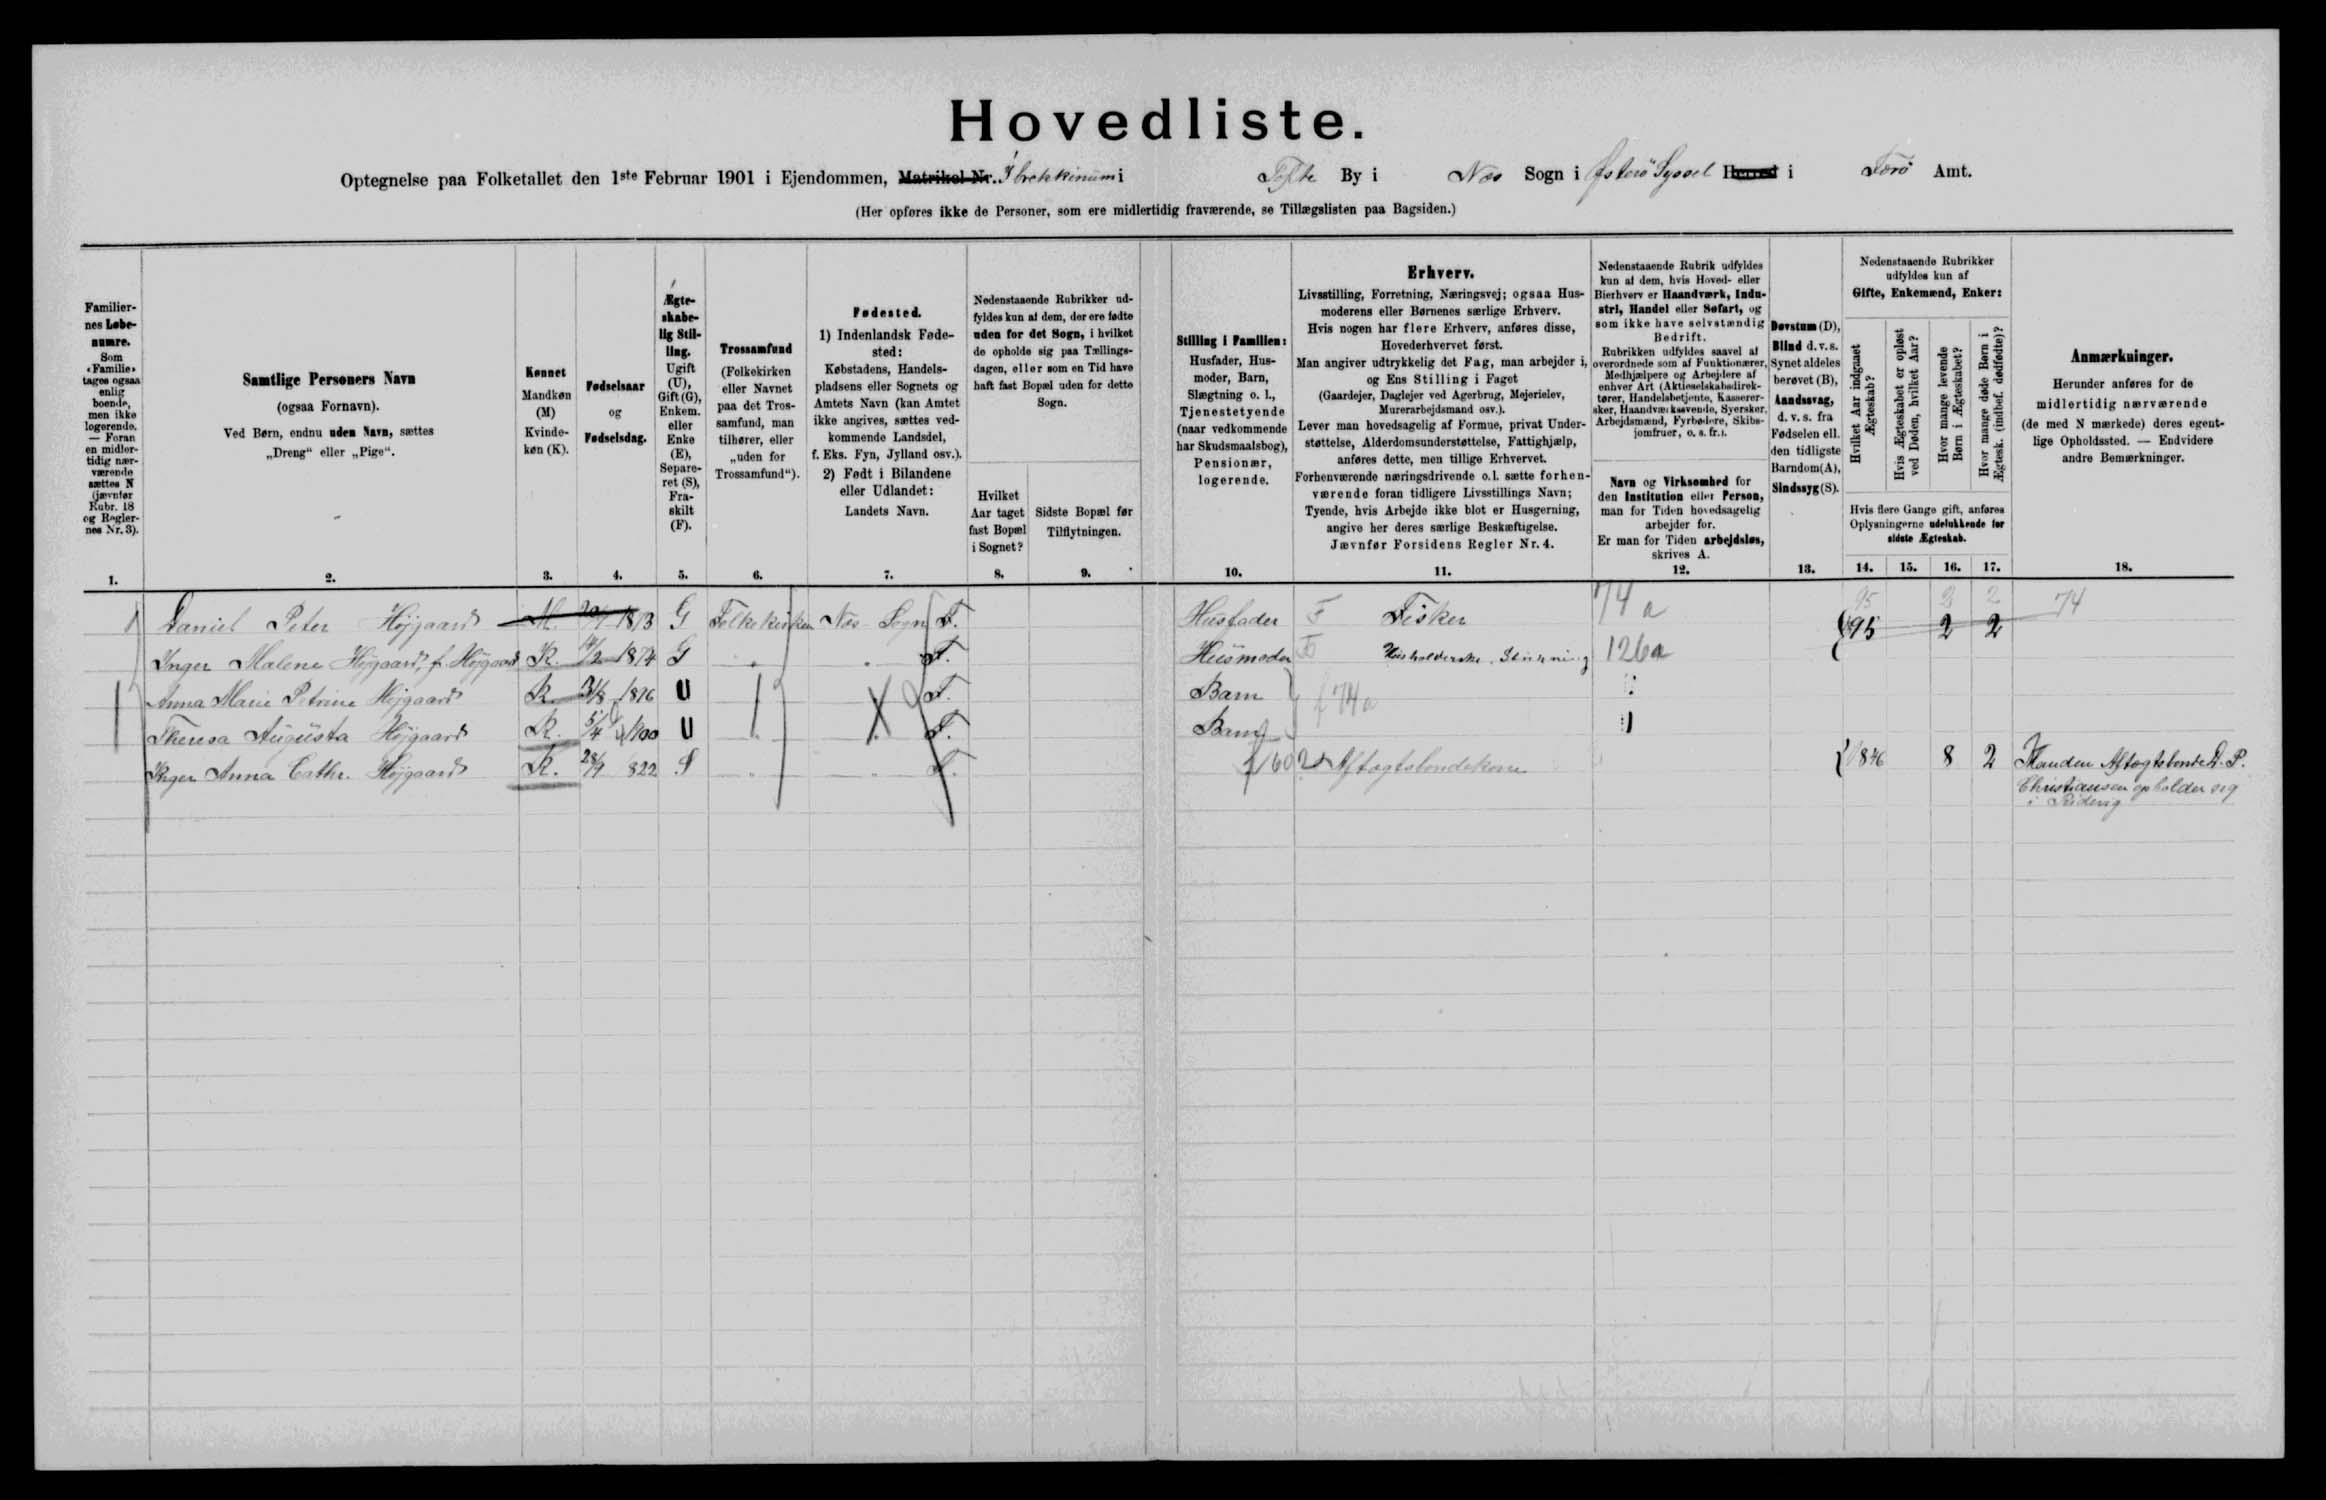 Hovedliste.
Optegnelse paa Folketallet den 1ste Februar 1901 i Ejendommen, Matrikel Nr. Ibrekkinum i Tofte By i Næs Sogn i Østerö Syssel Herred i Færö Amt.
(Her opføres ikke de Personer, som ere midlertidig fraværende, se Tillægslisten paa Bagsiden.)
Familier-
nes Løbe-
numre.
Som
«Familie»
tages ogsaa
enlig
boende,
men ikke
logerende.
— Foran
en midler-
tidig nær-
værende
sættes N
(jævnfør
Rubr. 18
og Regler-
nes Nr. 3).
1.
Samtlige Personers Navn
(ogsaa Fornavn).
Ved Børn, endnu uden Navn, sættes
„Dreng“ eller „Pige“.
2.
Kønnet
Mandkøn
(M)
Kvinde-
køn (K).
3.
Fødselsaar
og
Fødselsdag.
4.
Ægte-
skabe-
lig Stil-
ling.
Ugift
(U),
Gift (G),
Enkem.
eller
Enke
(E),
Separe-
ret (S),
Fra-
skilt
(F).
5.
Trossamfund
(Folkekirken
eller Navnet
paa det Tros-
samfund, man
tilhører, eller
„uden for
Trossamfund“).
6.
Fødested.
1) Indenlandsk Føde-
sted:
Købstadens, Handels-
pladsens eller Sognets og
Amtets Navn (kan Amtet
ikke angives, sættes ved-
kommende Landsdel,
f. Eks. Fyn, Jylland osv.).
2) Født i Bilandene
eller Udlandet:
Landets Navn.
7.
Nedenstaaende Rubrikker ud-
fyldes kun af dem, der ere fødte
uden for det Sogn, i hvilket
de opholde sig paa Tællings-
dagen, eller som en Tid have
haft fast Bopæl uden for dette
Sogn.
Hvilket
Aar taget
fast Bopæl
i Sognet?
8.
Sidste Bopæl før
Tilflytningen.
9.
Stilling i Familien:
Husfader, Hus-
moder, Barn,
Slægtning o. l.,
Tjenestetyende
(naar vedkommende
har Skudsmaalsbog),
Pensionær,
logerende.
10.
Erhverv.
Livsstilling, Forretning, Næringsvej; ogsaa Hus-
moderens eller Børnenes særlige Erhverv.
Hvis nogen har flere Erhverv, anføres disse,
Hovederhvervet først.
Man angiver udtrykkelig det Fag, man arbejder i,
og Ens Stilling i Faget
(Gaardejer, Daglejer ved Agerbrug, Mejerielev,
Murerarbejdsmand osv.).
Lever man hovedsagelig af Formue, privat Under-
støttelse, Alderdomsunderstøttelse, Fattighjælp,
anføres dette, men tillige Erhvervet.
Forhenværende næringsdrivende o. l. sætte forhen-
værende foran tidligere Livsstillings Navn;
Tyende, hvis Arbejde ikke blot er Husgerning,
angive her deres særlige Beskæftigelse.
Jævnfør Forsidens Regler Nr. 4.
11.
Nedenstaaende Rubrik udfyldes
kun af dem, hvis Hoved- eller
Bierhverv er Haandværk, Indu-
stri, Handel eller Søfart, og
som ikke have selvstændig
Bedrift.
Rubrikken udfyldes saavel af
overordnede som af Funktionærer,
Medhjælpere og Arbejdere af
enhver Art (Aktieselskabsdirek-
tører, Handelsbetjente, Kasserer-
sker, Haandværkssvende, Syersker,
Arbejdsmænd, Fyrbødere, Skibs-
jomfruer, o. s. fr.).
Navn og Virksomhed for
den Institution eller Person,
man for Tiden hovedsagelig
arbejder for.
Er man for Tiden arbejdsløs,
skrives A.
12.
Døvstum (D),
Blind d. v. s.
Synet aldeles
berøvet (B),
Aandssvag,
d. v. s. fra
Fødselen ell.
den tidligste
Barndom (A),
Sindssyg (S).
13.
Nedenstaaende Rubrikker
udfyldes kun af
Gifte, Enkemænd, Enker:
Hvilket Aar indgaaet
Ægteskab?
Hvis Ægteskabet er opløst
ved Døden, hvilket Aar?
Hvor mange levende
Børn i Ægteskabet?
Hvor mange døde Børn i
Ægtesk. (indbef. dødfødte)?
Hvis flere Gange gift, anføres
Oplysningerne udelukkende for
sidste Ægteskab.
14. 15. 16. 17.
Anmærkninger.
Herunder anføres for de
midlertidig nærværende
(de med N mærkede) deres egent-
lige Opholdssted. — Endvidere
andre Bemærkninger.
18.
95 2 2 74
Daniel Peter Højgaard M. 1873 G Folkekirken Næs Sogn F. Husfader F Fisker 74 a 95 2 2
Inger Malene Højgaard, f. Højgaard K. 1874 G F. Husmoder Husholderske. 126a
Anna Marie Petrine Højgaard K. 31/8 1896 U F. Barn 74a
Theresa Augusta Højgaard K. 5/4 1900 U F. Barn
Inger Anna Cathr. Højgaard K. 28/9 822 S F. Aftagtsbondekone 1846 8 2 Manden Aftagtsbonde D. P.
Christiansen opholder sig
i